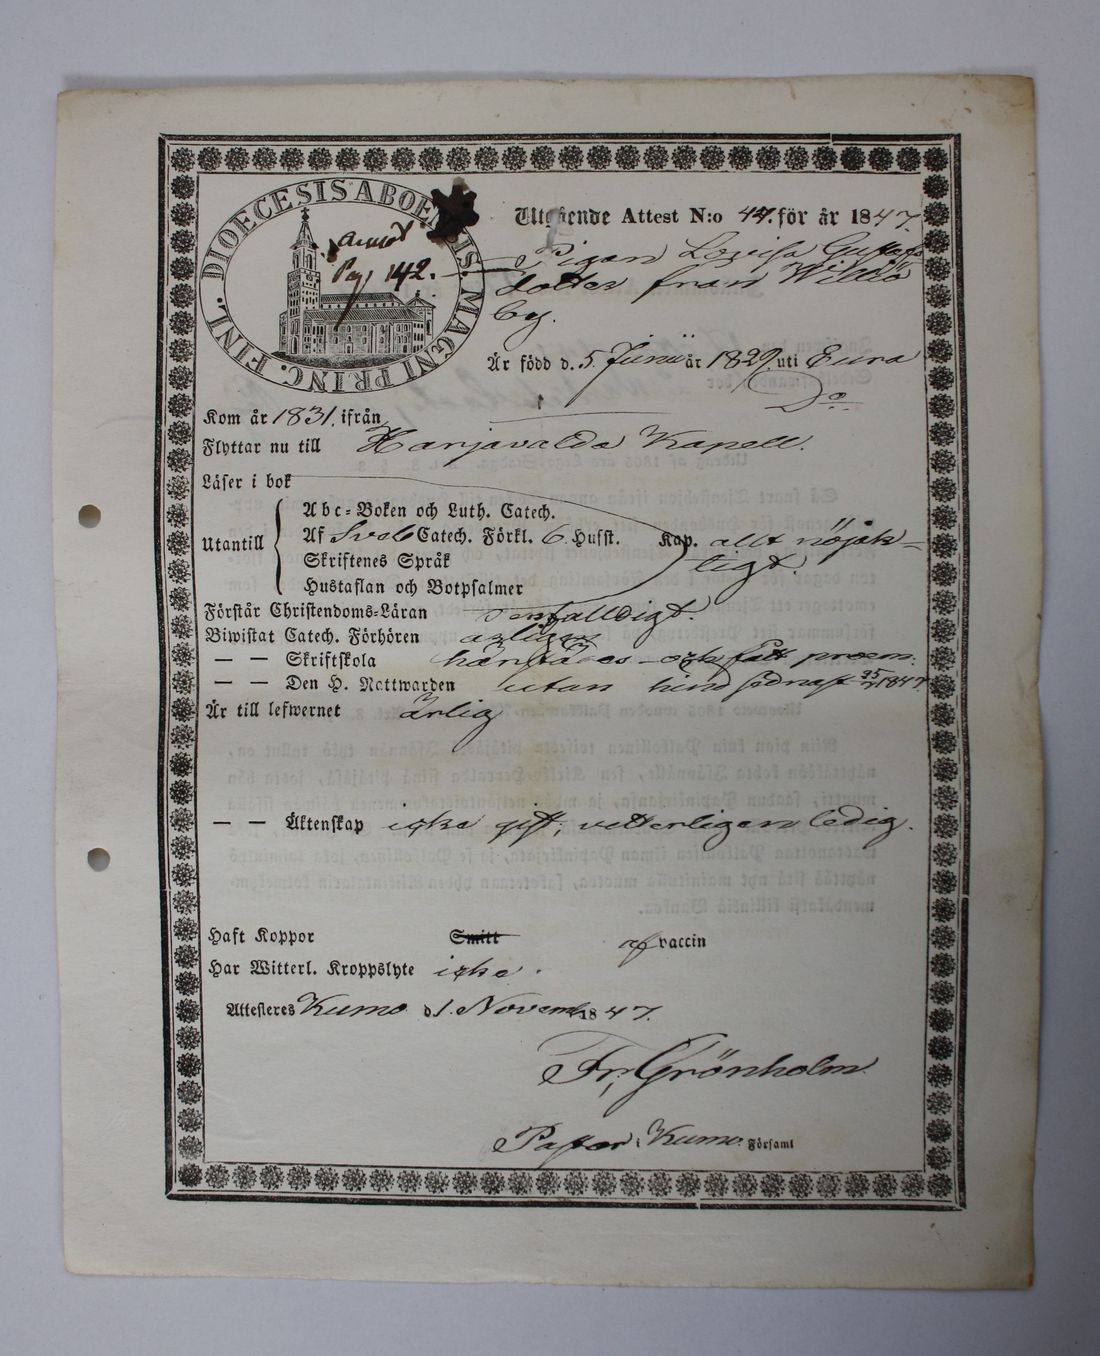 DIOECESIS ABOENSIS. MAGNI PRINC. FINL.
Pag 142.
Utgående Attest N:o 44. för år 1847.
Pigan Lovisa Gustafs
dotter från
by.
Är född d. 5 Junii år 1829. uti Eura
Do
Kom år 1831. ifrån
Flyttar nu till Harjavalda Kapell.
Läser i bok
Utantill
Abc-Boken och Luth. Catech.
Af Sveb Catech. Förkl. 6 Hufst. Kap. allt nöjak-
ligt
Skriftenes Språk
Hustaflan och Botpsalmer
Förstår Christendoms-Läran enfalldigt.
Biwistat Catech. Förhören årligen
— — Skriftskola och fått proem:
— — Den H. Nattwarden utan hind sednast 1847.
Är till lefwernet ärlig
— — Äktenskap icke gift, vetterligen ledig.
Haft Koppor Smitt af vaccin
Har Witterl. Kroppslyte icke.
Attesteres Kumo d. 1. Novemb 1847.
Fr. Grönholm.
Pastor i Kumo Församl